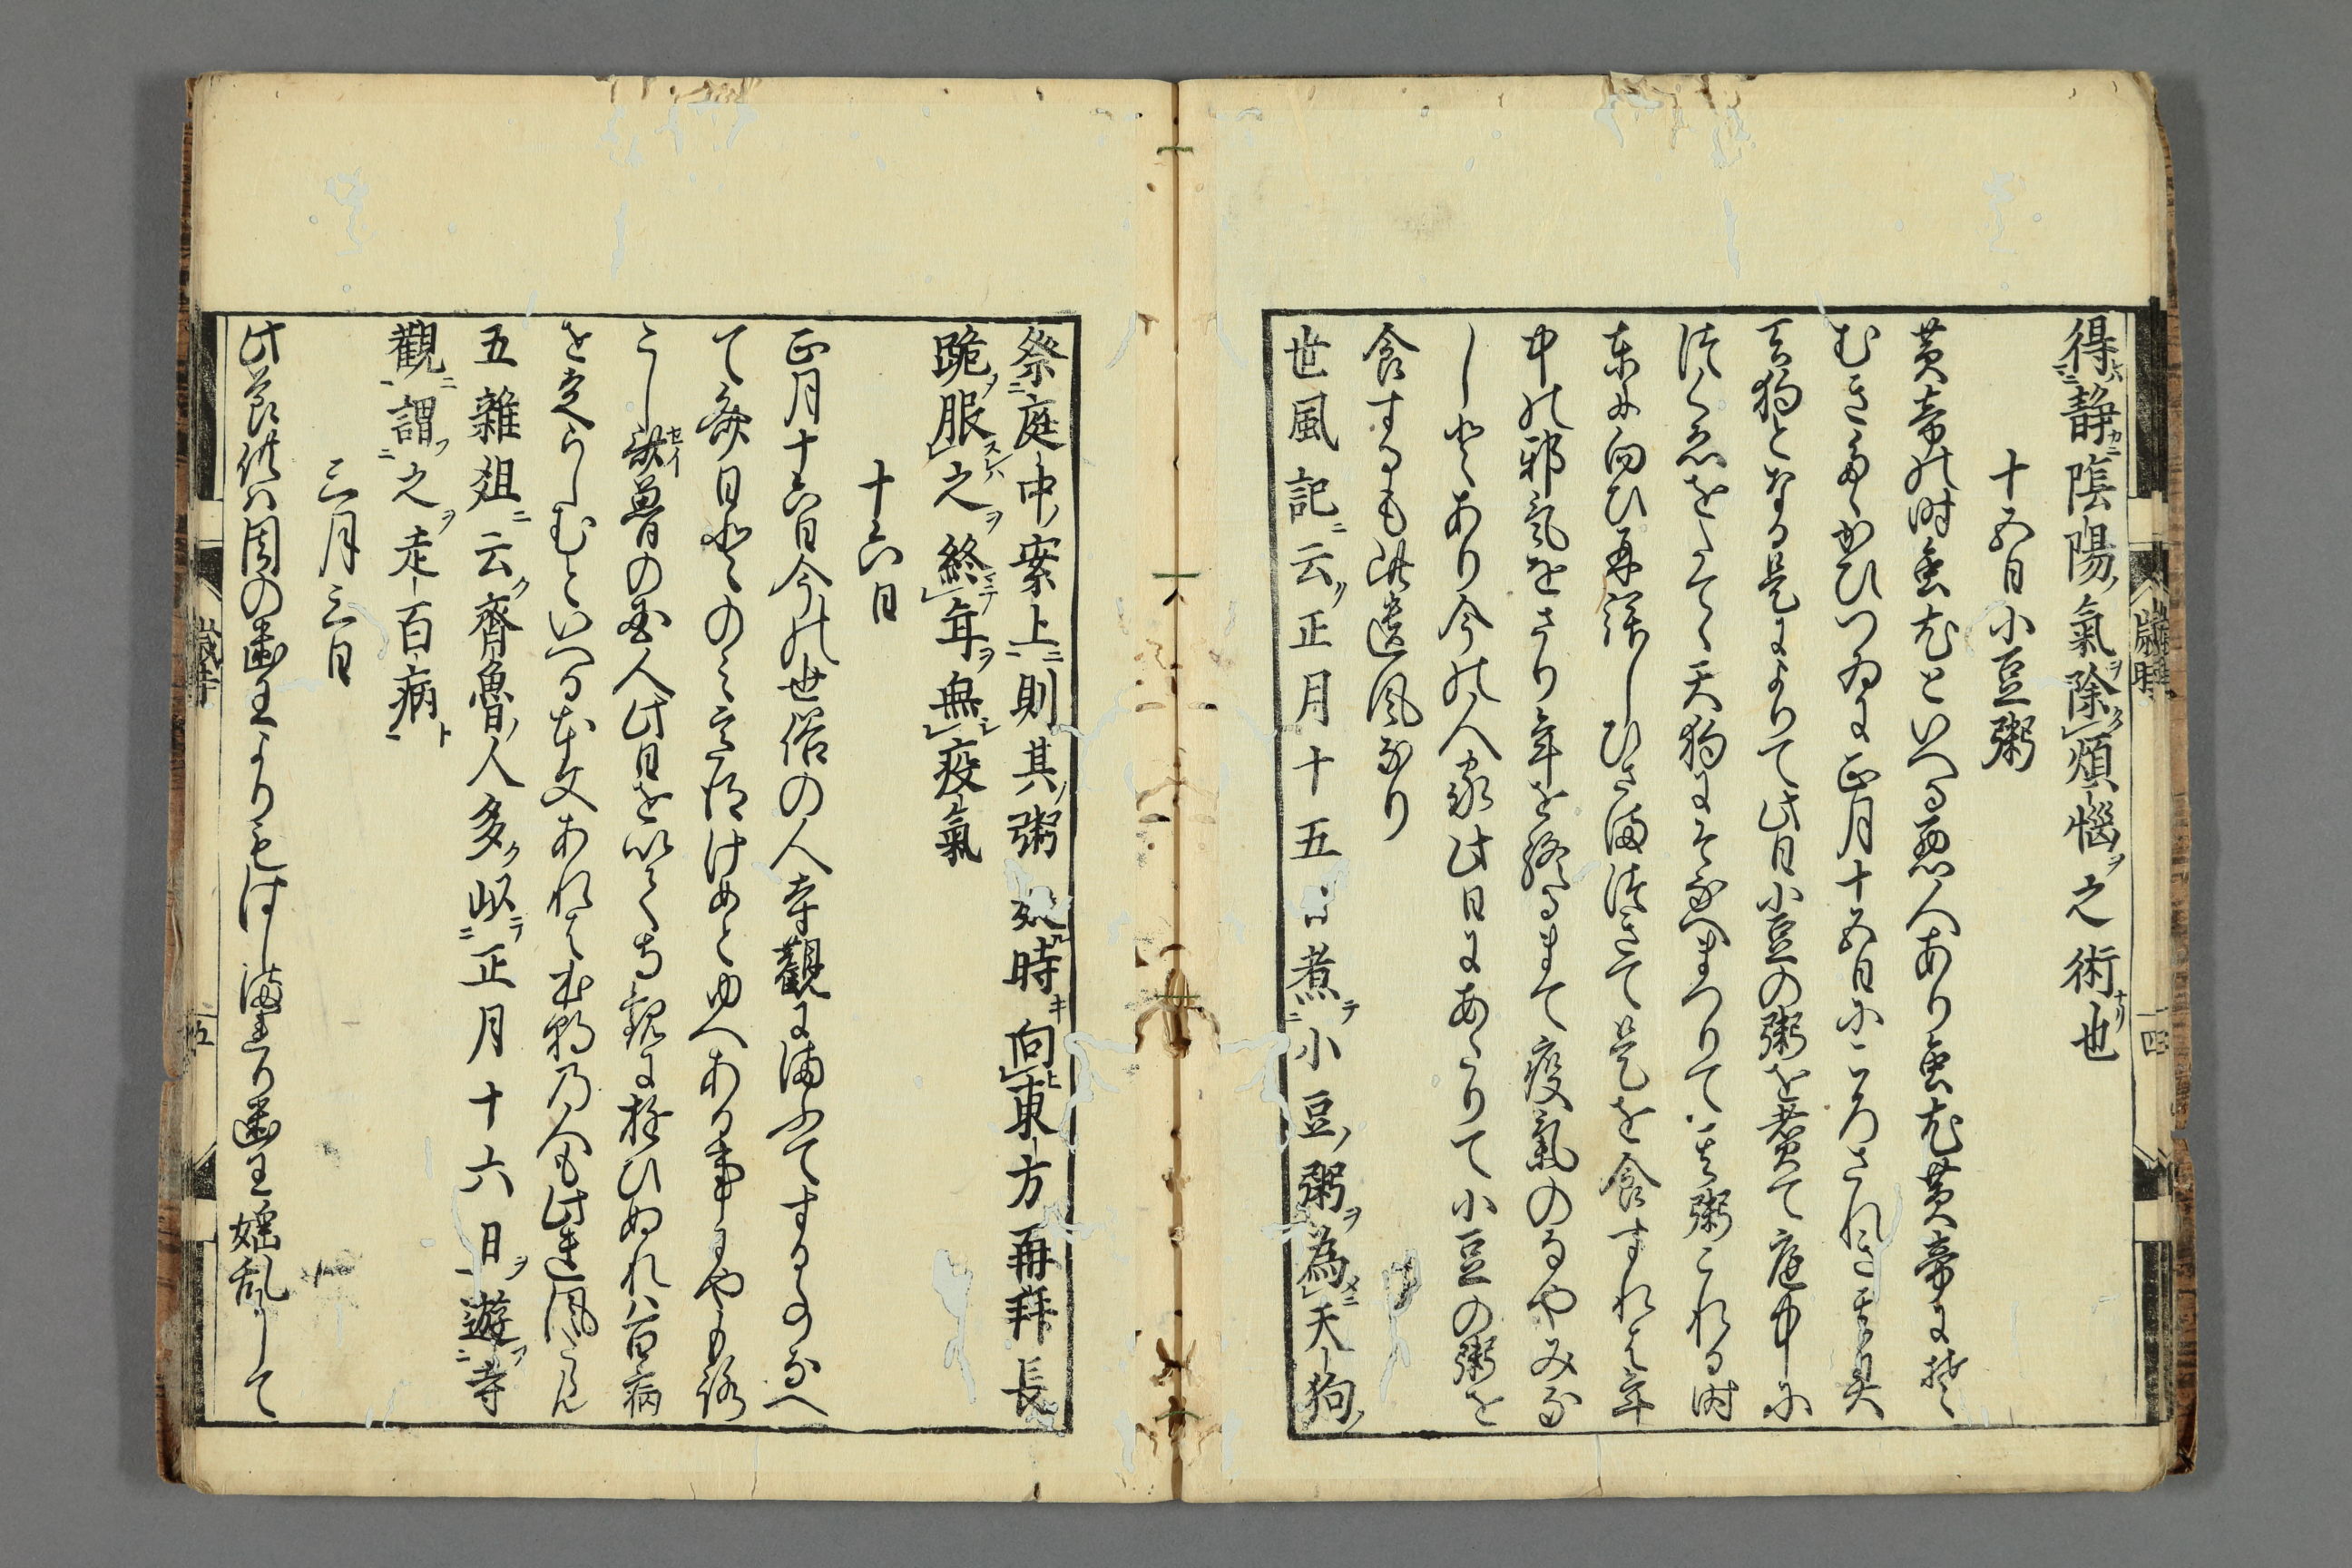 得静陰陽氣除煩惱之術也
十五日小豆粥
黄帝の時蚩尤といへる悪人あり蚩尤黄帝にそ
むきたゝかひつゐに正月十五日にころされき其灵
天狗となる是によりて此日小豆の粥を煮て庭中に
つくゑをたてゝ天狗にそなへまつりて其粥これる時
東に向ひ再拝しひさまつきて是を食すれは年
中の邪氣をさり年を終るまて疫氣のなやみな
しとあり今の人家此日にあたりて小豆の粥を
食するも此遺風なり
世風記云正月十五日煮小豆粥為天狗
祭庭中案上則其粥 時向東方再拜長
跪服之終年無疫氣
十六日
正月十六日今の世俗の人寺觀にまふてするのなへ
て齋日とのみ意得けめとゆへある事にやもろ
こし齊魯の国人此日を以て寺觀に遊ひぬれハ百病
をさらしむといへる本文あれは本朝乃人も此遺風ならん
五雜爼云齊魯人多以正月十六日遊寺
觀謂之走百病
三月三日
此節供ハ周の幽王よりもはしまれり幽王婬乱にして
歳時
十四
歳時
十五